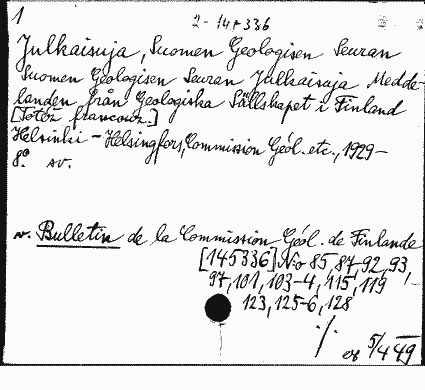 1
2-14+336
Julkaisuja, Suomen Geologisen Seuran
Suomen Geologisen Seuran Julkaisuja Medde-
landen från Geologiska Sällskapet i Finland
Helsinki - Helsingfors, Commission Géol. etc., 1929-
8°.
v. Bulletin de la Commission Géol. de Finlande
[145336] No 85, 87-92, 93,
97, 101, 103-4, 115, 119
123, 125-6, 128
./.
5/4 49